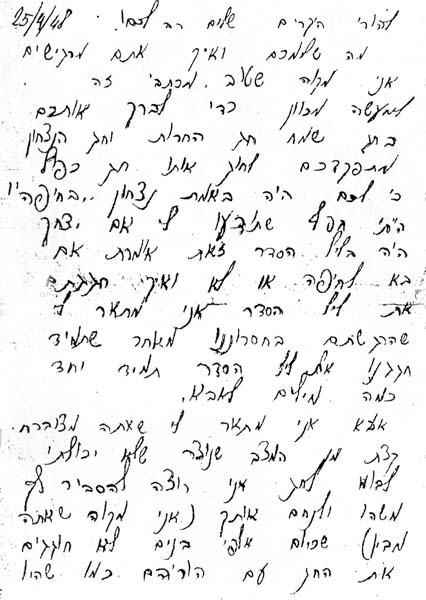 25/4/48 להורי היקרים שלום רב לכם!
מה שלומכם ואיך אתם מרגישים
אני מקוה שטוב. מכתבי זה
למעשה מכוון כדי לברך אתכם
בחג שמח חג החרות וחג הנצחון
כי לכם היה באמת נצחון "בחיפה"
הייתי שתודיעו לי אם יצחק
היה בליל הסדר זאת אומרת אם
בא לחיפה או לא ואיך חגגתם
את ליל הסדר אני מתאר לי
שהרגשתם בחסרוננו מאחר שתמיד
חגגנו את ליל הסדר תמיד יחד
כמה מילים לאבא.
אבא אני מתאר לי שאתה מצוברח
קצת מן המצב שנוצר שלא יכולתי
לבוא לחג אני רוצה להסביר לך
משהו ולנחם אותך (אני מקוה שאתה
מבין) שכיום אלפי בנים לא חוגגים
את החג עם הוריהם כמו שהיו